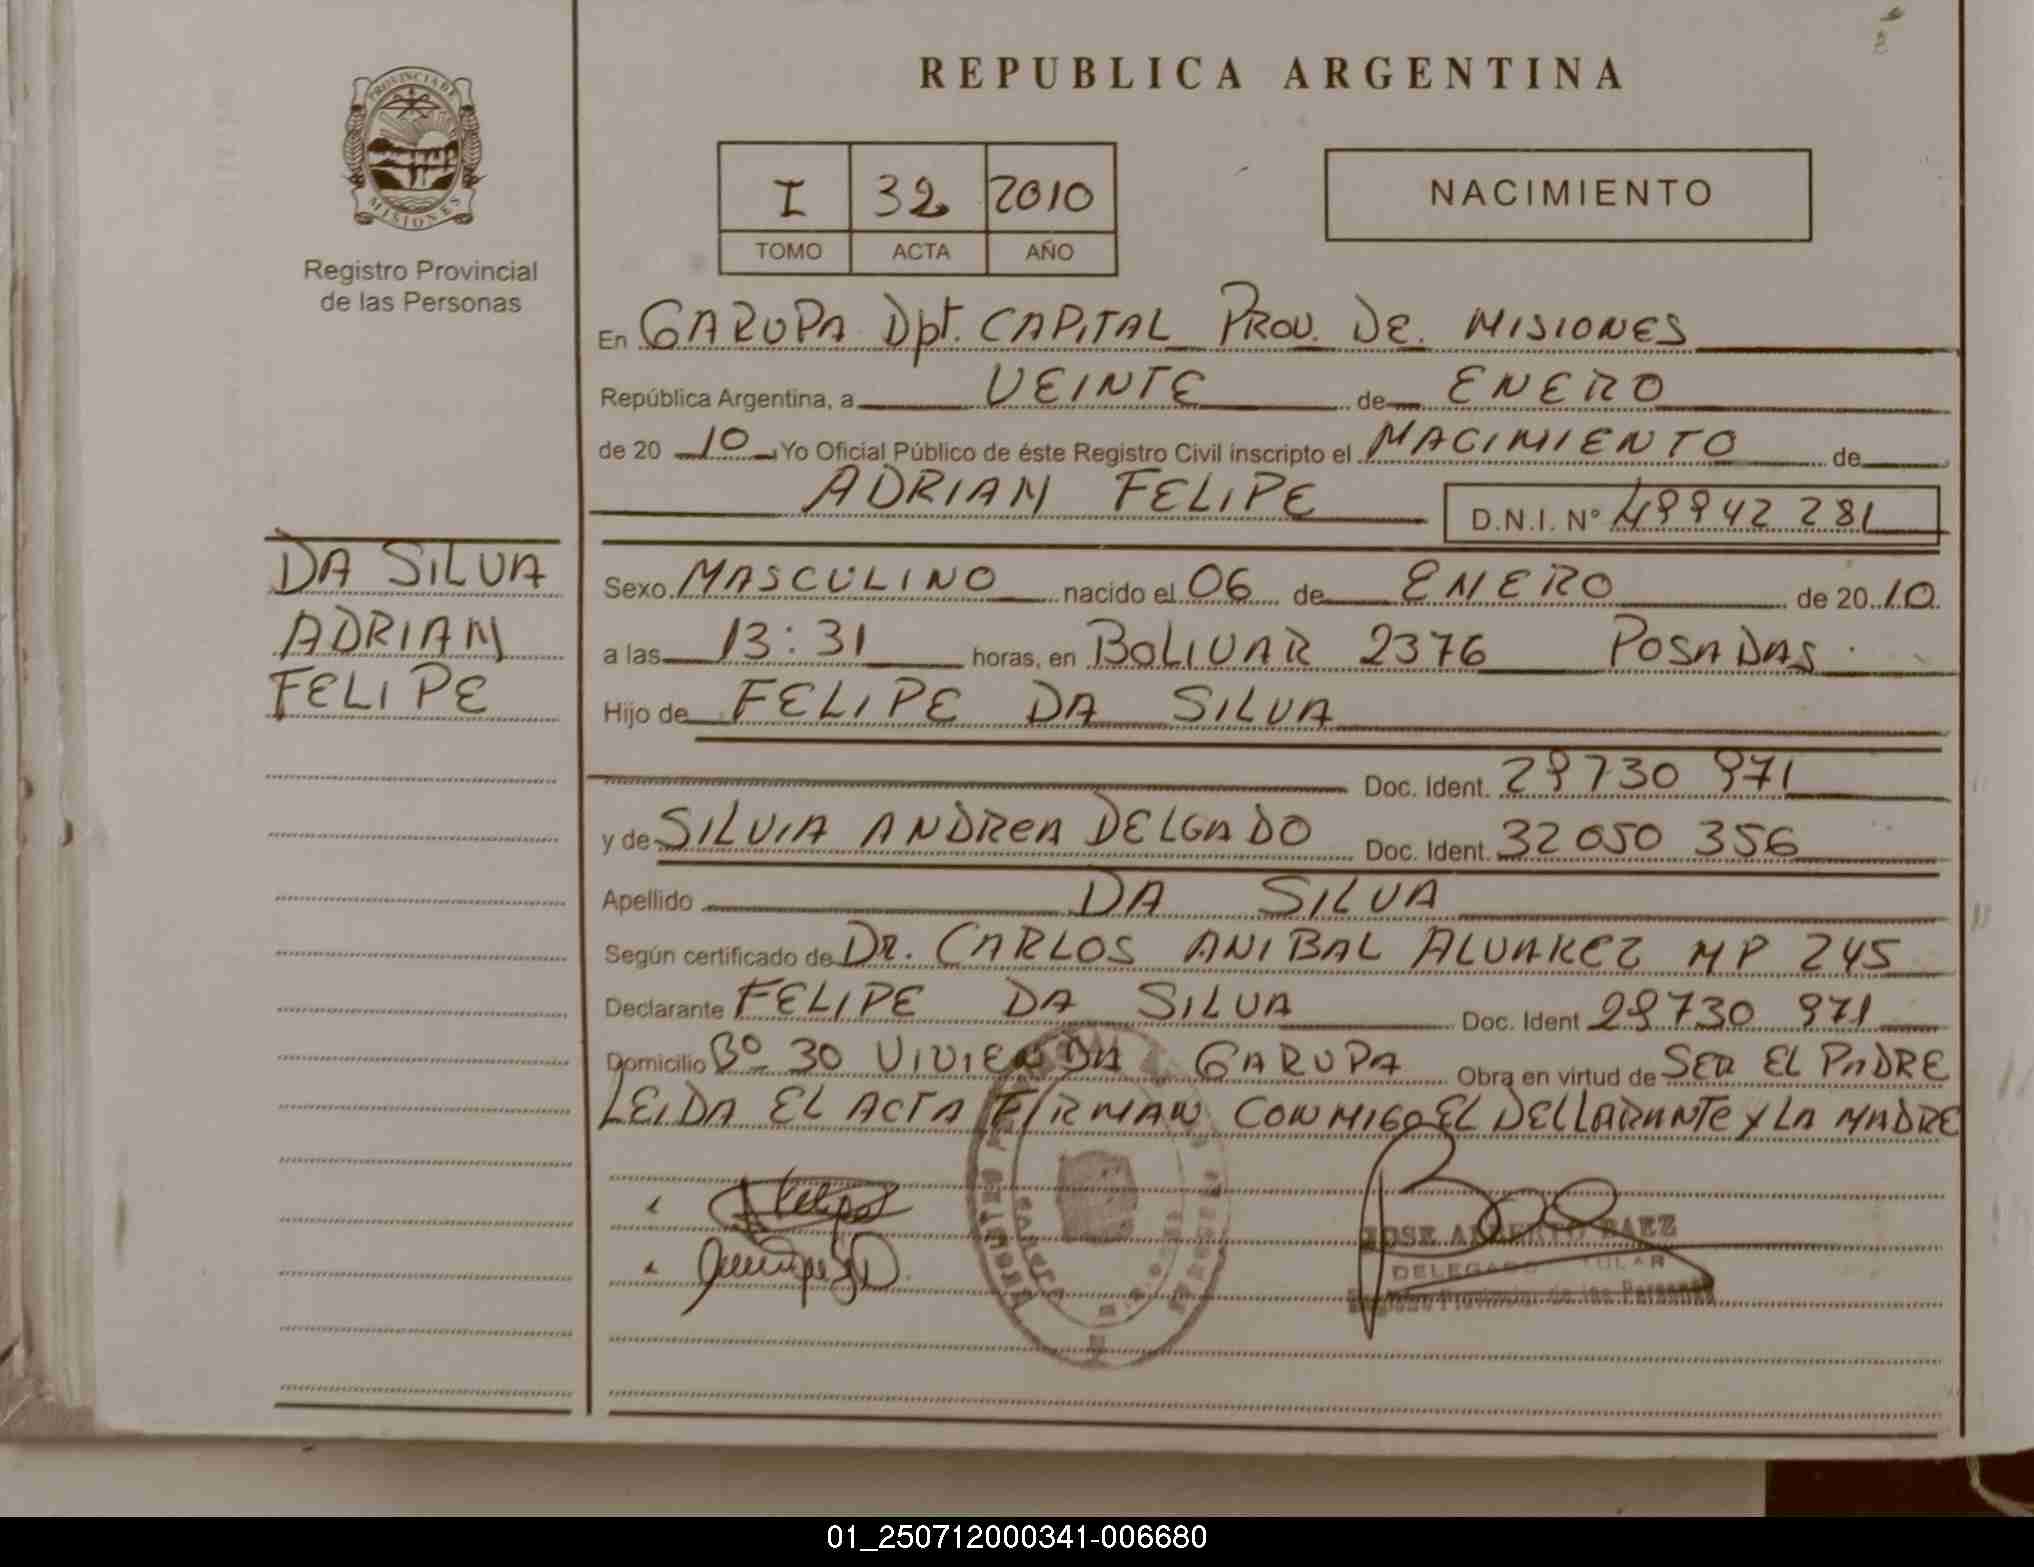 REPUBLICA ARGENTINA
PROVINCIA DE
MISIONES
Registro Provincial
de las Personas
I 32 2010
TOMO ACTA AÑO
NACIMIENTO
En GARUPA Dpt. CAPITAL PROV. DE. MISIONES
República Argentina, a VEINTE de ENERO
de 20 10 Yo Oficial Público de éste Registro Civil inscripto el NACIMIENTO de
ADRIAN FELIPE D.N.I. Nº 49942 281
DA SILVA
ADRIAN
FELIPE
Sexo MASCULINO nacido el 06 de ENERO de 20 10
a las 13:31 horas, en BOLIVAR 2376 POSADAS.
Hijo de FELIPE DA SILVA
Doc. Ident. 29730 971
y de SILVIA ANDREA DELGADO Doc. Ident. 32 050 356
Apellido DA SILVA
Según certificado de DR. CARLOS ANIBAL ALVAREZ MP 245
Declarante FELIPE DA SILVA Doc. Ident 29730 971
Domicilio Bº 30 VIVIENDA GARUPA Obra en virtud de SER EL PADRE
LEIDA EL ACTA FIRMAN CONMIGO EL DELLARANTE Y LA MADRE
JOSE ALBERTO BAEZ
Registro Provincial de las Personas
01_250712000341-006680